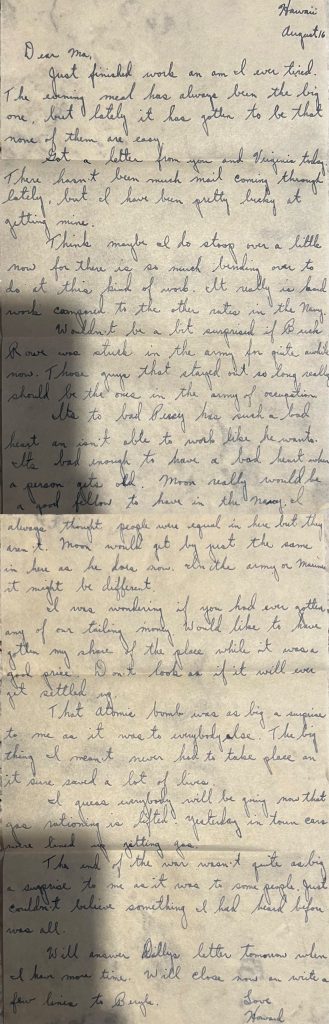 Hawaii
August 16
Dear Ma,
Just finished work an am I ever tired.
The evening meal has always been the big
one, but lately it has gotten to be that
none of them are easy.
Got a letter from you and Virginia today.
There hasn't been much mail coming through
lately, but I have been pretty lucky at
getting mine.
Think maybe I do stoop over a little
now for there is so much bending over to
do at this kind of work. It really is hard
work compared to the other rates in the Navy.
Wouldn't be a bit surprised if Buck
Rowe was stuck in the army for quite awhile
now. Those guys that stayed out so long really
should be the ones in the army of occupation.
Its to bad Percy has such a bad
heart an isn't able to work like he wants.
Its bad enough to have a bad heart when
a person gets old. Moon really would be
a good fellow to have in the Navy. I
always thought people were equal in here but they
aren't. Moon would get by just the same
in here as he does now. In the army or Marines
it might be different.
I was wondering if you had ever gotten
any of our tailing money. Would like to have
gotten my share of the place while it was a
good price. Don't look as if it will ever
get settled up.
That Atomic bomb was as big a surprise
to me as it was to everybody else. The big
thing I meant never had to take place an
it sure saved a lot of lives.
I guess everybody will be going now that
gas rationing is lifted. Yesterday in town cars
were lined up getting gas.
The end of the war wasn't quite as big
a surprise to me as it was to some people. Just
couldn't believe something I had heard before
was all.
Will answer letter tomorrow when
I have more time. Will close now an write a
few lines to
Love
Howard